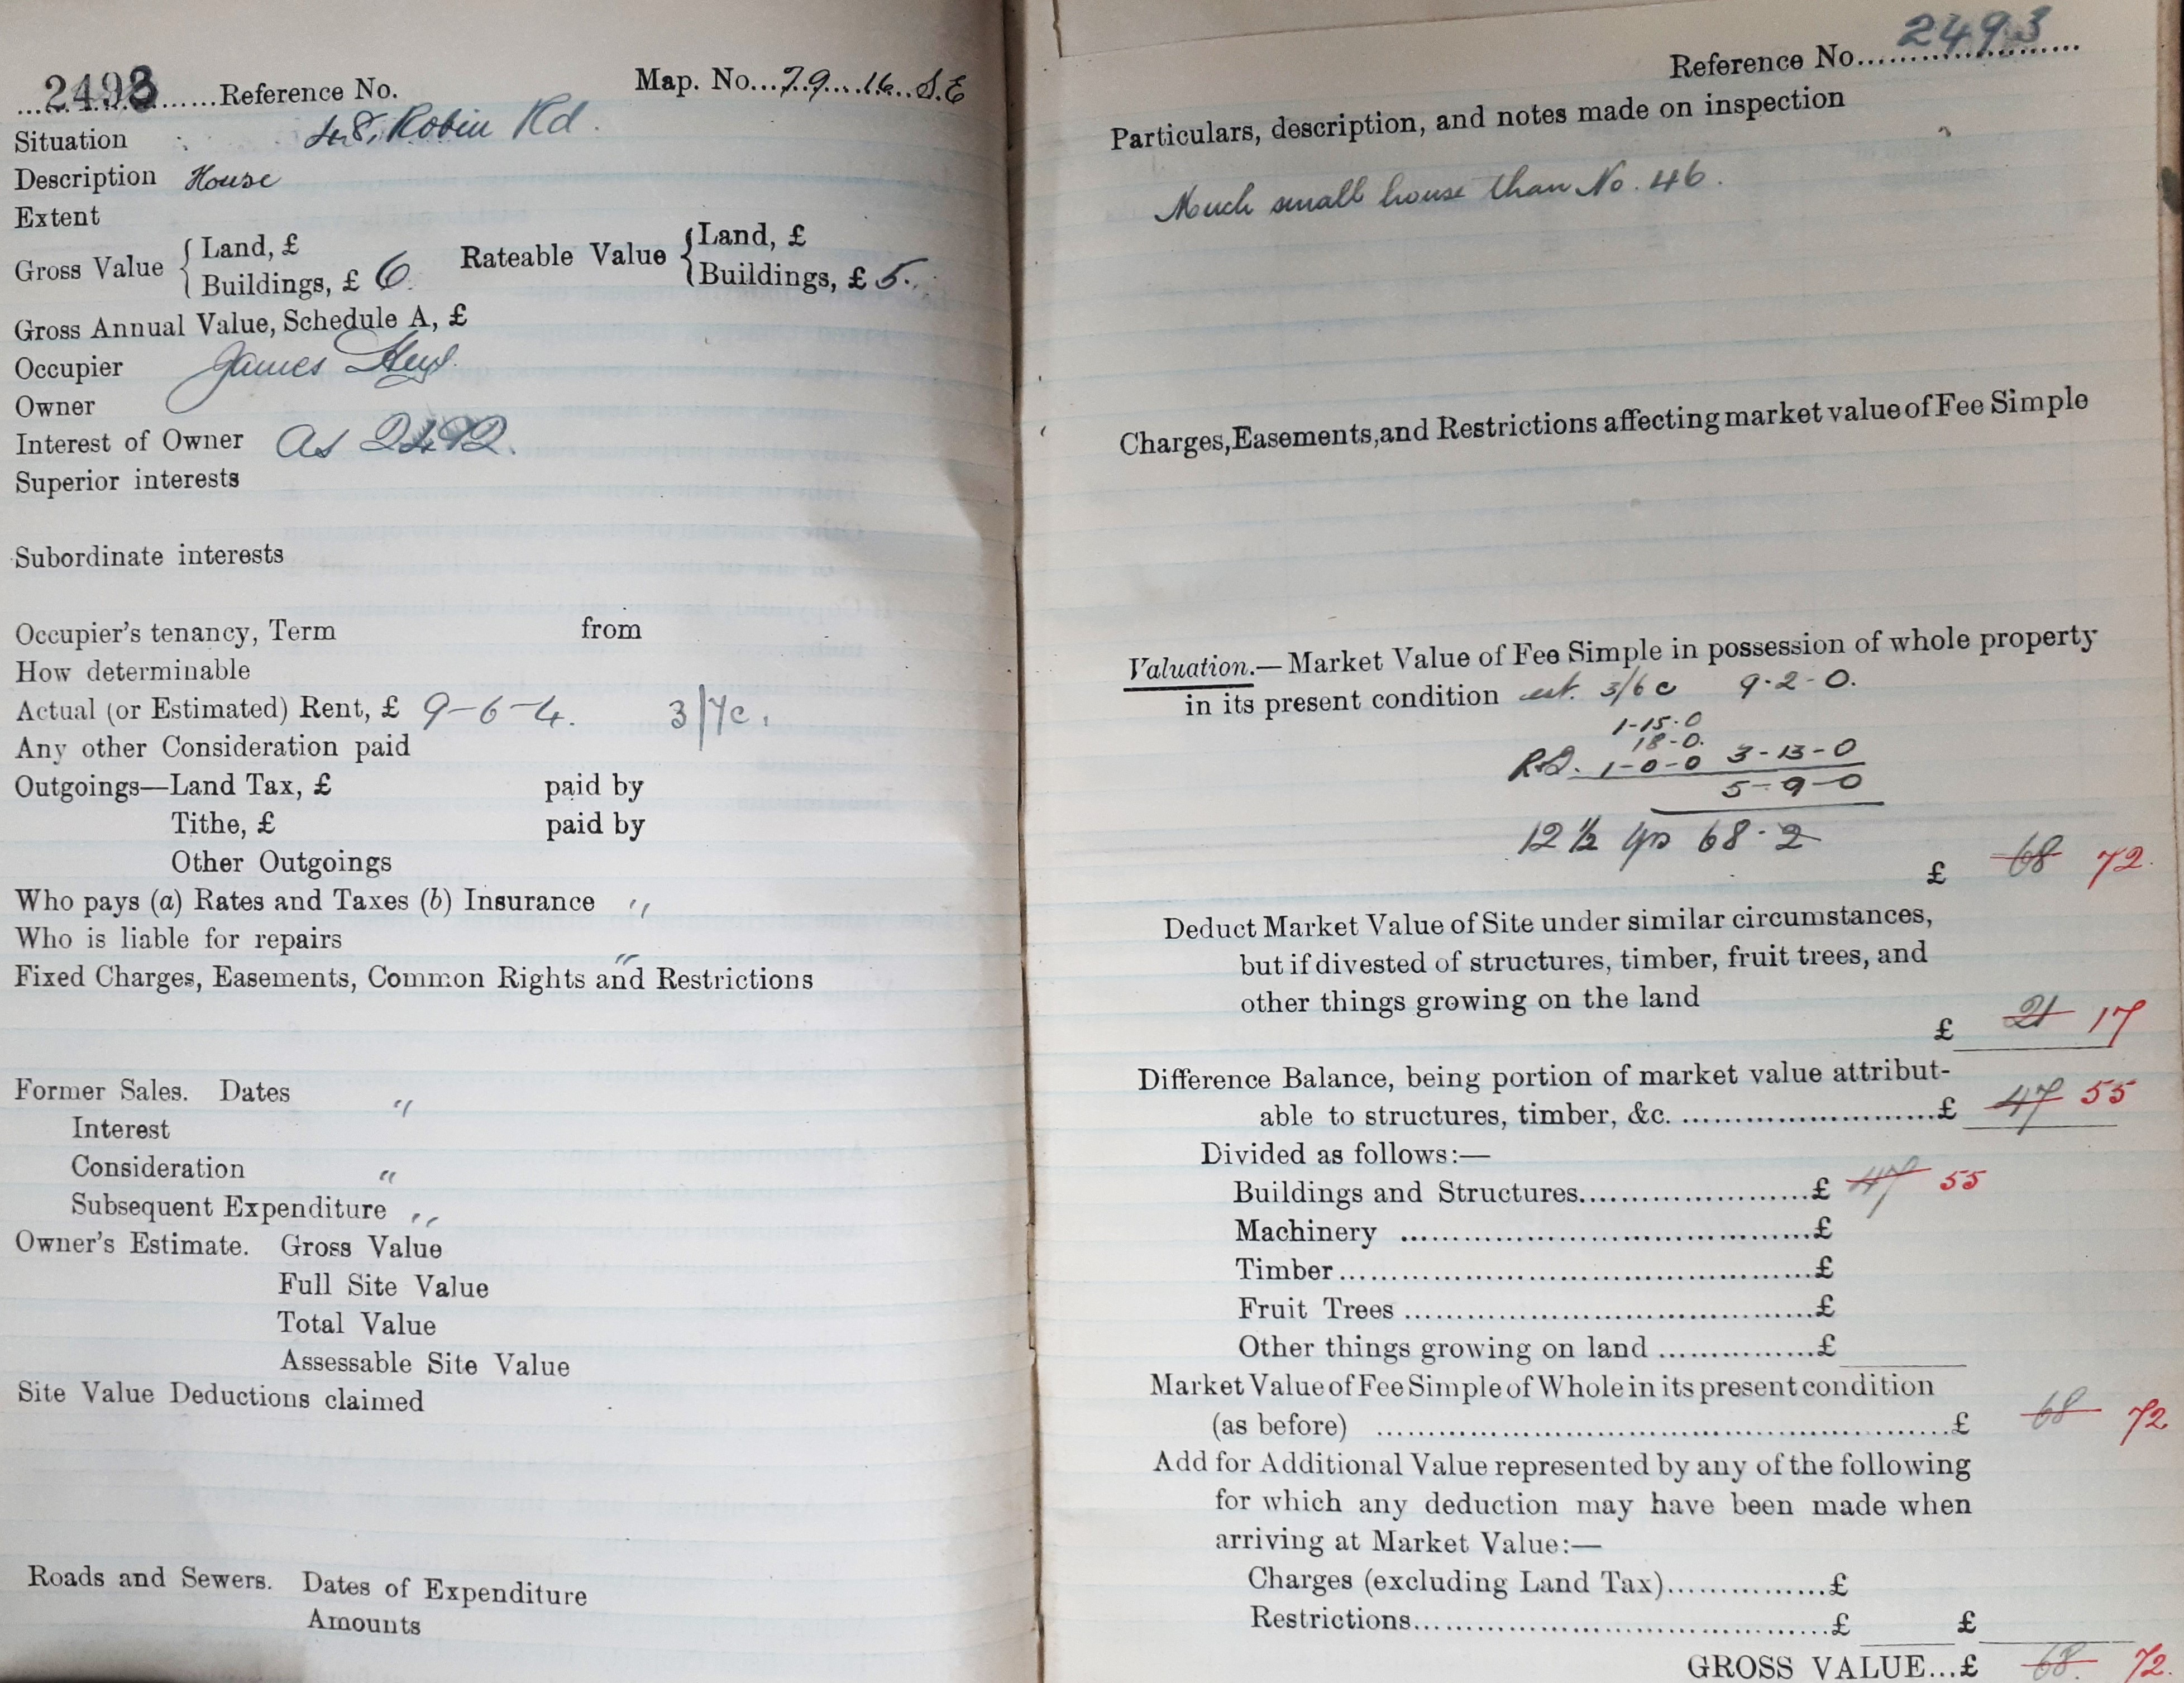 2493 Reference No. Map. No. 79. 16. S.E
Situation 48, Robin Rd.
Description House
Extent
Gross Value { Land, £ Rateable Value { Land, £
Buildings, £ 6. Buildings, £ 5.
Gross Annual Value, Schedule A, £
Occupier James
Owner
Interest of Owner As 2492.
Superior interests
Subordinate interests
Occupier's tenancy, Term from
How determinable
Actual (or Estimated) Rent, £ 9-6-4. 3/7c.
Any other Consideration paid
Outgoings—Land Tax, £ paid by
Tithe, £ paid by
Other Outgoings
Who pays (a) Rates and Taxes (b) Insurance "
Who is liable for repairs "
Fixed Charges, Easements, Common Rights and Restrictions
Former Sales. Dates "
Interest
Consideration "
Subsequent Expenditure "
Owner's Estimate. Gross Value
Full Site Value
Total Value
Assessable Site Value
Site Value Deductions claimed
Roads and Sewers. Dates of Expenditure
Amounts
Reference No. 2493
Particulars, description, and notes made on inspection
Much small house than No. 46.
Charges, Easements, and Restrictions affecting market value of Fee Simple
Valuation.— Market Value of Fee Simple in possession of whole property
in its present condition est. 3/6 c 9-2-0.
1-15-0
18-0.
1-0-0 3-13-0
5-9-0
12 ½ yp 68-2
£ 68 72.
Deduct Market Value of Site under similar circumstances,
but if divested of structures, timber, fruit trees, and
other things growing on the land
£ 21 17
Difference Balance, being portion of market value attribut-
able to structures, timber, &c. £ 47 55
Divided as follows:—
Buildings and Structures £ 47 55
Machinery £
Timber £
Fruit Trees £
Other things growing on land £
Market Value of Fee Simple of Whole in its present condition
(as before) £ 68 72
Add for Additional Value represented by any of the following
for which any deduction may have been made when
arriving at Market Value:—
Charges (excluding Land Tax) £
Restrictions £ £
GROSS VALUE...£ 68. 72.